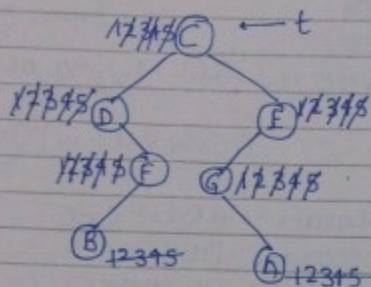 12345 C ← t
12345 D E 12345
12345 F G 12345
B 12345
A 12345